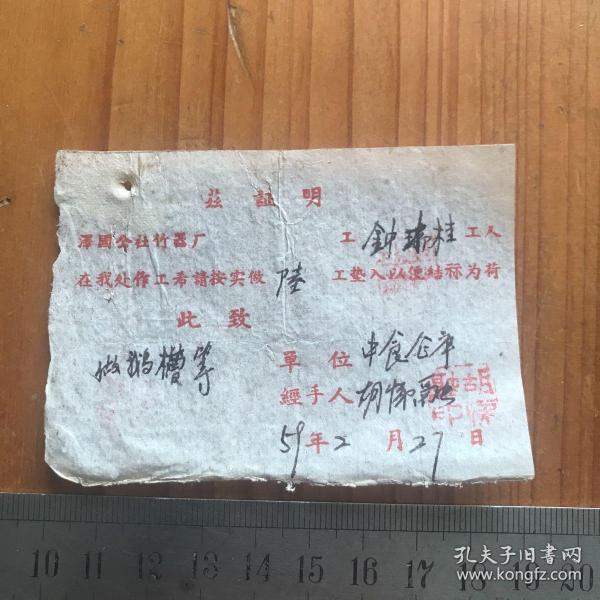 茲証明
澤國公社竹器厂 工 鈡瑞桂 工人
在我处作工希請按实做 陸 工垫入以便结标为荷
此致
做 槽等
單位 中食仓库
經手人 胡
59年2月27日
10 11 12 13 14 15 16 17 18 19 20
孔夫子旧书网
www.kongfz.com